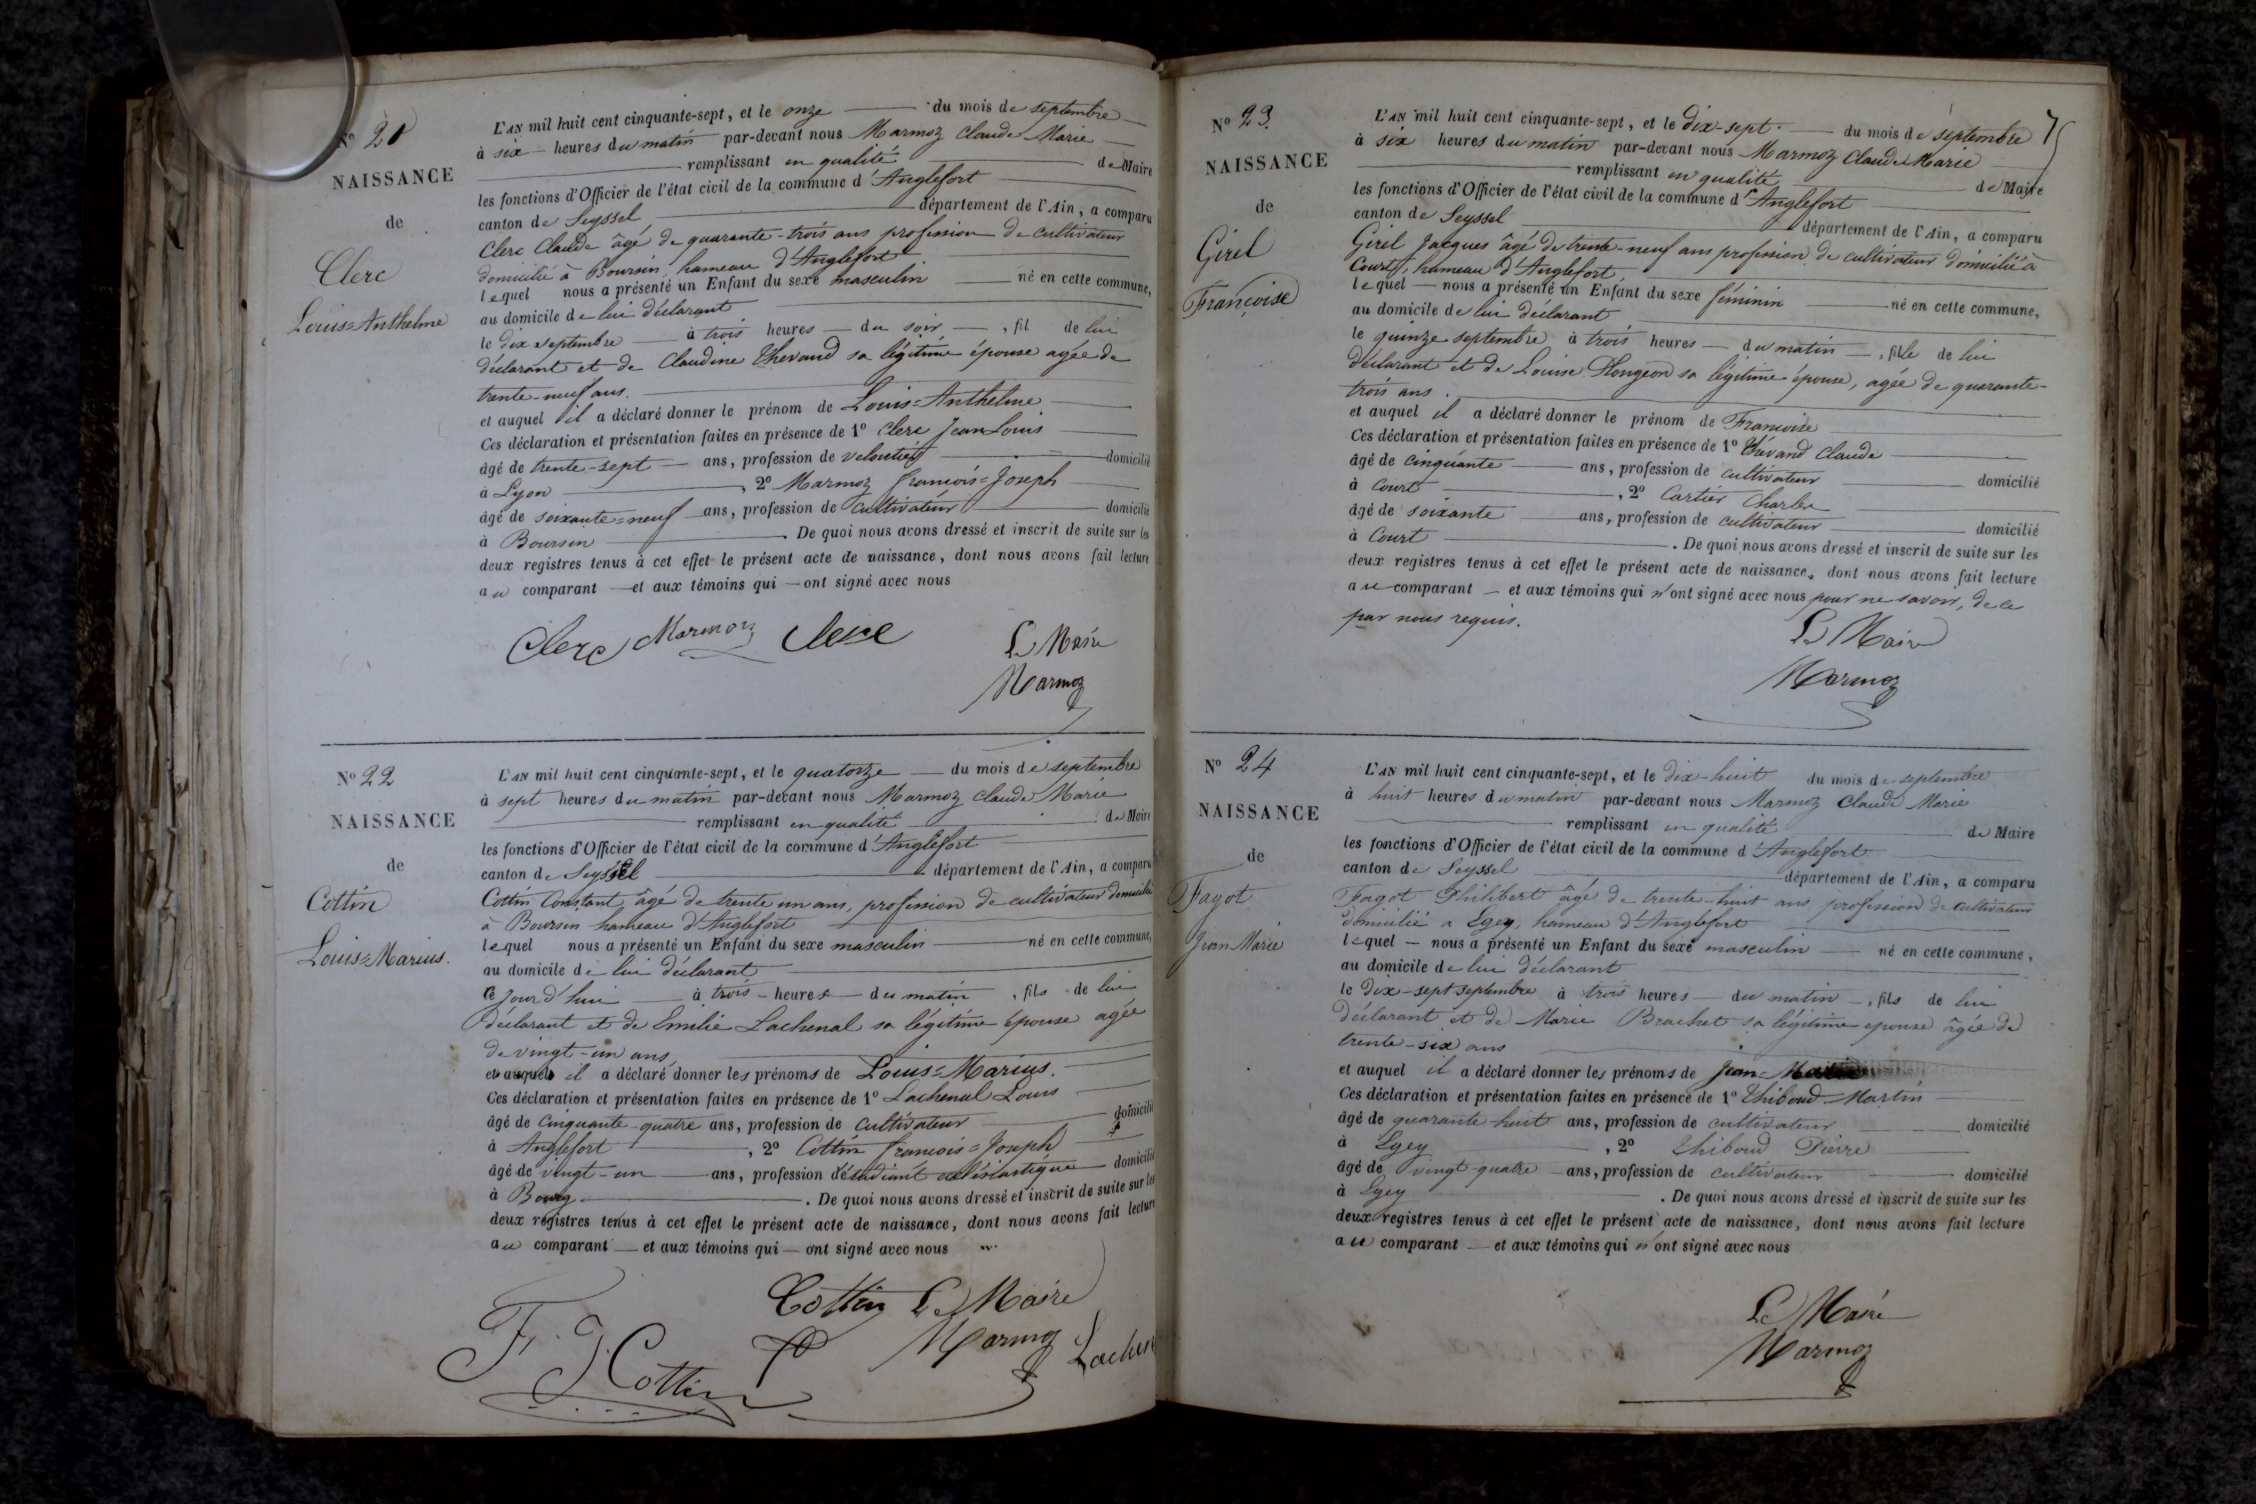 Nº 21
NAISSANCE
de
Clerc
Louis=Anthelme
L'AN mil huit cent cinquante-sept, et le onze du mois de septembre
à six heures du matin par-devant nous Marmoz Claude Marie
remplissant en qualité de Maire
les fonctions d'Officier de l'état civil de la commune d'Anglefort
canton de Seyssel département de l'Ain, a comparu
Clerc Claude âgé de quarante-trois ans profession de cultivateur
domicilié à Boursin hameau d'Anglefort
lequel nous a présenté un Enfant du sexe masculin né en cette commune,
au domicile de lui déclarant
le dix septembre à trois heures du soir, fil de lui
déclarant et de Claudine Thevand sa légitime épouse agée de
trente-neuf ans.
et auquel il a déclaré donner le prénom de Louis=Anthelme
Ces déclaration et présentation faites en présence de 1º Clerc Jean Louis
âgé de trente-sept ans, profession de veloutier domicilié
à Lyon, 2º Marmoz françois=Joseph
âgé de soixante=neuf ans, profession de cultivateur domicilié
à Boursin. De quoi nous avons dressé et inscrit de suite sur les
deux registres tenus à cet effet le présent acte de naissance, dont nous avons fait lecture
au comparant et aux témoins qui ont signé avec nous
Clerc Marmoz Clerc Le Maire
Marmoz
Nº 22
NAISSANCE
de
Cottin
Louis=Marius.
L'AN mil huit cent cinquante-sept, et le quatorze du mois de septembre
à sept heures du matin par-devant nous Marmoz Claude Marie
remplissant en qualité de Maire
les fonctions d'Officier de l'état civil de la commune d'Anglefort
canton de Seyssel département de l'Ain, a comparu
Cottin Constant âgé de trente un ans, profession de cultivateur domicilié
à Boursin hameau d'Anglefort
lequel nous a présenté un Enfant du sexe masculin né en cette commune,
au domicile de lui déclarant
ce jour d'hui à trois heures du matin, fils de lui
déclarant et de Emilie Lachenal sa légitime épouse agée
de vingt-un ans
et auquel il a déclaré donner les prénoms de Louis=Marius.
Ces déclaration et présentation faites en présence de 1º Lachenal Louis
âgé de cinquante-quatre ans, profession de cultivateur domicilié
à Anglefort, 2º Cottin françois=Joseph
âgé de vingt-un ans, profession d'étudiant domicilié
à Bourg. De quoi nous avons dressé et inscrit de suite sur les
deux registres tenus à cet effet le présent acte de naissance, dont nous avons fait lecture
au comparant et aux témoins qui ont signé avec nous
Cottin Le Maire
F. J. Cottin Marmoz Lachen
Nº 23.
NAISSANCE
de
Girel
Françoise
L'AN mil huit cent cinquante-sept, et le dix-sept du mois de septembre
à six heures du matin par-devant nous Marmoz Claude Marie
remplissant en qualité de Maire
les fonctions d'Officier de l'état civil de la commune d'Anglefort
canton de Seyssel département de l'Ain, a comparu
Girel Jacques âgé de trente-neuf ans profession de cultivateur domicilié à
Court, hameau d'Anglefort
lequel nous a présenté un Enfant du sexe féminin né en cette commune,
au domicile de lui déclarant
le quinze septembre à trois heures du matin, fille de lui
déclarant et de Louise sa légitime épouse, agée de quarante-
trois ans.
et auquel il a déclaré donner le prénom de Francoise
Ces déclaration et présentation faites en présence de 1º Thévand Claude
âgé de cinquante ans, profession de cultivateur domicilié
à Court, 2º Cartier Charles
âgé de soixante ans, profession de cultivateur domicilié
à Court. De quoi nous avons dressé et inscrit de suite sur les
deux registres tenus à cet effet le présent acte de naissance, dont nous avons fait lecture
au comparant et aux témoins qui n'ont signé avec nous pour ne savoir, de ce
par nous requis.
Le Maire
Marmoz
Nº 24
NAISSANCE
de
Fagot
Jean Marie
L'AN mil huit cent cinquante-sept, et le dix-huit du mois de septembre
à huit heures du matin par-devant nous Marmoz Claude Marie
remplissant en qualité de Maire
les fonctions d'Officier de l'état civil de la commune d'Anglefort
canton de Seyssel département de l'Ain, a comparu
Fagot Philibert âgé de trente-huit ans profession de cultivateur
domicilié a Lgey, hameau d'Anglefort
lequel nous a présenté un Enfant du sexe masculin né en cette commune,
au domicile de lui déclarant
le dix-sept septembre à trois heures du matin, fils de lui
déclarant et de Marie Brachet sa légitime epouse âgée de
trente-six ans
et auquel il a déclaré donner les prénoms de Jean=Marie
Ces déclaration et présentation faites en présence de 1º Thiboud Martin
âgé de quarante-huit ans, profession de cultivateur domicilié
à Lgey, 2º Thiboud Pierre
âgé de vingt-quatre ans, profession de cultivateur domicilié
à Lgey. De quoi nous avons dressé et inscrit de suite sur les
deux registres tenus à cet effet le présent acte de naissance, dont nous avons fait lecture
au comparant et aux témoins qui n'ont signé avec nous
Le Maire
Marmoz